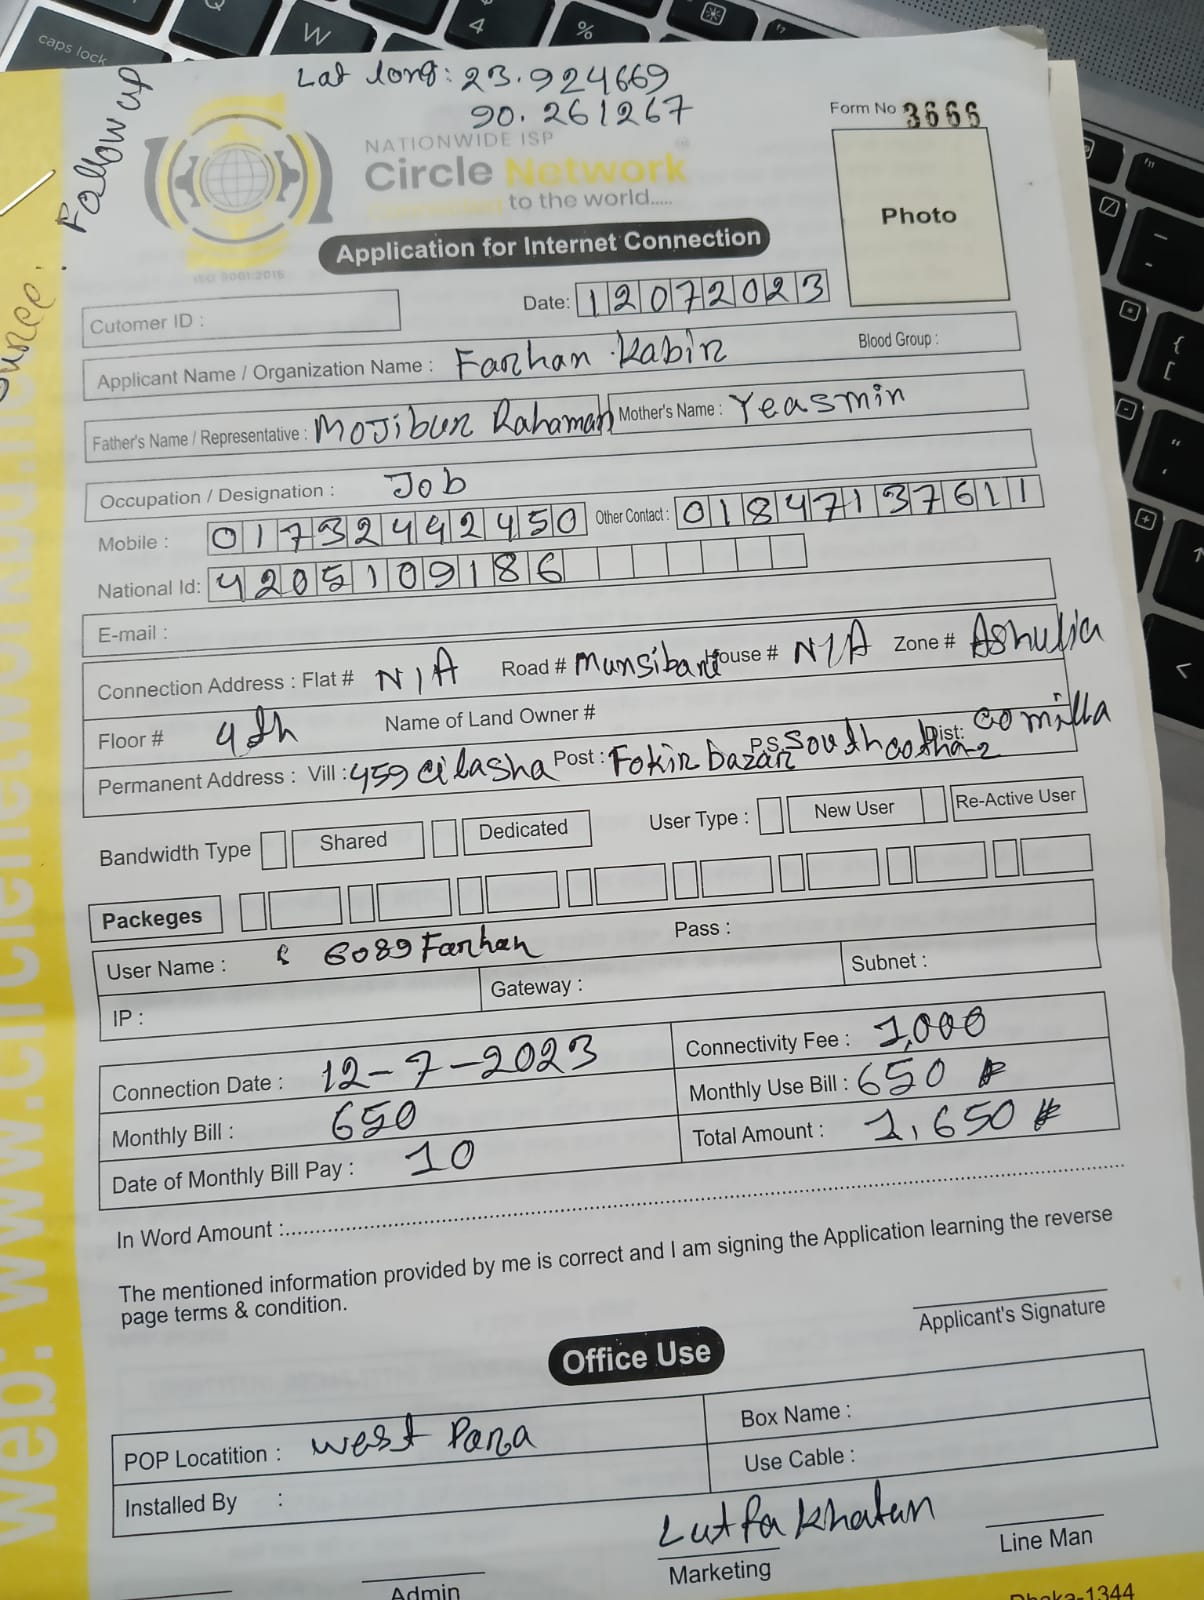 caps lock
W
4
%
Lat long: 23.924669
90.261267
Follow up
Form No 3666
NATIONWIDE ISP
Circle Network
to the world.....
ISO 9001:2015
Photo
Application for Internet Connection
Cutomer ID :
Date: 12072023
Applicant Name / Organization Name : Farhan Kabir
Blood Group :
Father's Name / Representative : Mojibur Rahaman Mother's Name : Yeasmin
Occupation / Designation : Job
Mobile : 01732442450 Other Contact : 01847137611
National Id: 4205109186
E-mail :
Connection Address : Flat # N/A Road # Munsibari House # N/A Zone # Ashulia
Floor # 4th Name of Land Owner #
Permanent Address : Vill : 459 Post : Fokir bazar P.S. South Dist: Comilla
Bandwidth Type Shared Dedicated User Type : New User Re-Active User
Packeges
User Name : 6089Farhan Pass :
IP : Gateway : Subnet :
Connection Date : 12-7-2023 Connectivity Fee : 1,000
Monthly Bill : 650 Monthly Use Bill : 650
Date of Monthly Bill Pay : 10 Total Amount : 1,650
In Word Amount :
The mentioned information provided by me is correct and I am signing the Application learning the reverse
page terms & condition.
Applicant's Signature
Office Use
POP Locatition : West Para Box Name :
Installed By : Use Cable :
Lutfa Khatun
Admin Marketing Line Man
Dhaka-1344